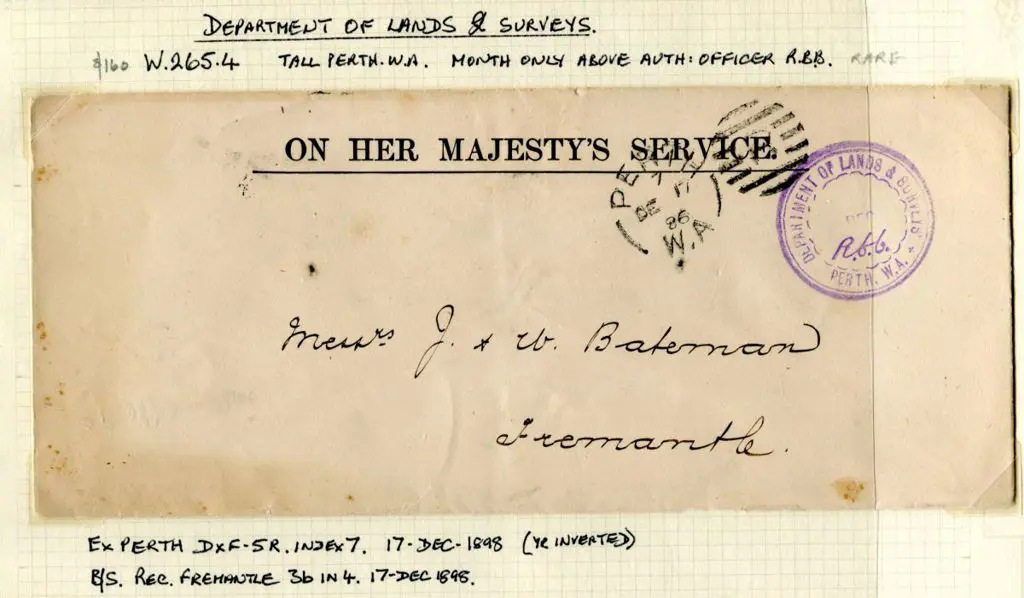 DEPARTMENT OF LANDS & SURVEYS.
$160 W.265.4 TALL PERTH.W.A. MONTH ONLY ABOVE AUTH: OFFICER R.B.B. RARE
ON HER MAJESTY'S SERVICE.
PERTH
7
DE 17
86
W.A
DEPARTMENT OF LANDS & SURVEYS
DEC
R.b.b.
PERTH. W.A.
Messrs J. & W. Bateman
Fremantle.
EX PERTH DXF-5R. INDEX 7. 17-DEC-1898 (YR INVERTED)
B/S. REC. FREMANTLE 3b IN 4. 17-DEC 1898.